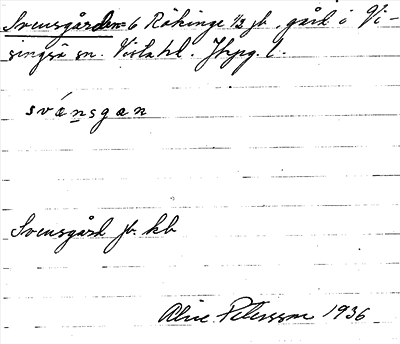 Svensgården 6 Rökinge 1/2 jb, gård i Vi-
singsö sn. Vista hd. Jkpg. l.
svánsgan
Svensgård jb. kb
Alice Petersson 1936